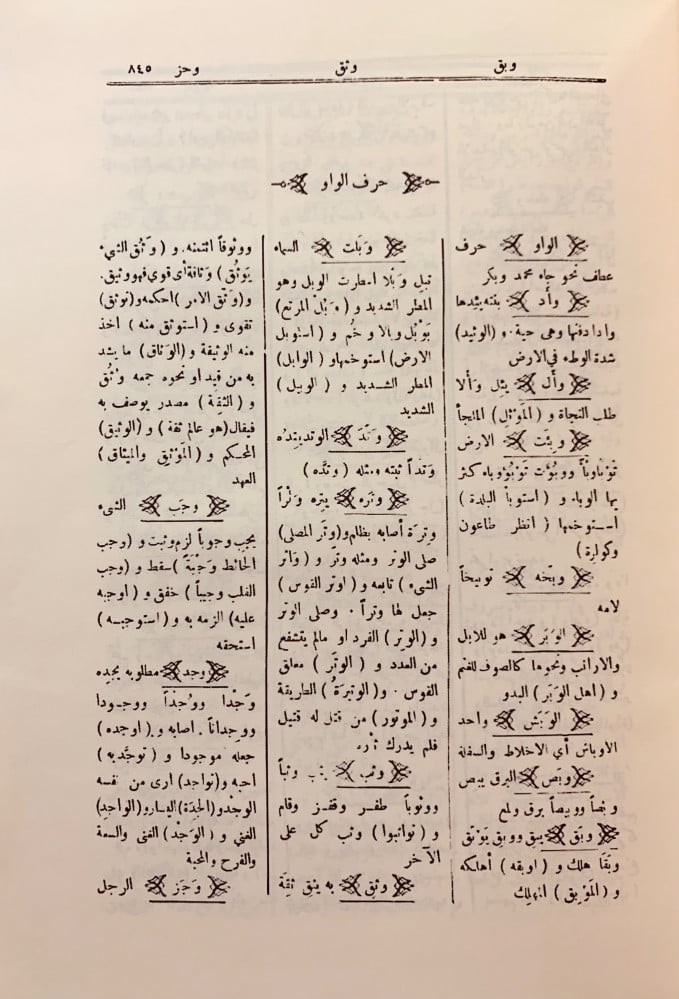 وبق وثق وحز ٨٤٥
حرف الواو
الواو حرف
عطف نحو جاء محمد وبكر
وأد بنته يئدها
وأدا دفنها وهى حية. و (الوئيد)
شدة الوطء في الارض
وأل يئل وَألا
طلب النجاة و (المَوْئِل) الملتجأ
وبئت الارض
كثر
بها الوباء و (استوبأ البلدة)
استوخمها (انظر طاعون
وكوليرة)
وبّخه توبيخاً
لامه
الوَبَر هو للابل
والارانب ونحوها كالصوف للغنم
و (اهل الوَبَر) البدو
الوَبَش واحد
الاوباش أي الاخلاط والسفلة
وبَص البرق يبص
وبصاً ووبيصاً برق ولمع
وبَق يبق ووبق يَوْبَق
وبَقا هلك و (اوبقه) أهلكه
و (المَوْبِق) المهلك
وبَلت السماء
تبل وَبْلا امطرت الوبل وهو
المطر الشديد و (وَبُلَ المرتع)
يَوْبُل وبالا وخُم و (استوبل
الارض) استوخمها و (الوابل)
المطر الشديد و (الوبيل)
الشديد
وَتَدَ الوتد يتده
وَتْداً ثبته ومثله (وتَّده)
وتَره يتره وَتْراً
وتِرة أصابه بظلم و(وتَر المصلى)
صلى الوتر ومثله وتّر و (واتر
الشىء) تابعه و (اوتر القوس)
جعل لها وتراً. وصلى الوتر
و (الوتر) الفرد او مالم يتشفع
من العدد و (الوتَر) معلق
القوس. و (الوتيرةُ) الطريقة
و (الموتور) من قتل له قتيل
فلم يدرك ثأره
وثب يثب وثباً
ووثوباً طفر وقفز وقام
و (تواثبوا) وثب كل على
الآخر
وثِق به يثِق ثِقَة
ووثوقاً ائتمنه. و (وَثُق الشيء
يَوْثُق) وثاقة أى قوي فهو وثيق.
و(وثّق الامر) احكمه و(توثق)
تقوى و (استوثق منه) اخذ
منه الوثيقة و (الوَثاق) ما يشد
به من قيد او نحوه جمعه وُثُق
و (الثِقة) مصدر يوصف به
فيقال (هو عالم ثقة) و (الوثيق)
المحكم و (المَوْثِق والميثاق)
العهد
وجَب الشىء
يجب وجوباً لزم وثبت و (وجب
الحائط وَجْبَةً) سقط و (وجب
القلب وجيباً) خفق و (اوجبه
عليه) الزمه به و (استوجبه)
استحقه
وجد مطلوبه يجده
وَجْدا ووُجْداً ووجودا
ووجداناً. اصابه و (اوجده)
جعله موجودا و (توجَّد به)
احبه و(تواجد) ارى من نفسه
الوجد و (الجِدَة) اليسار و (الواجد)
الغني و (الوَجْد) الغنى والسعة
والفرح والمحبة
وَجَز الرجل